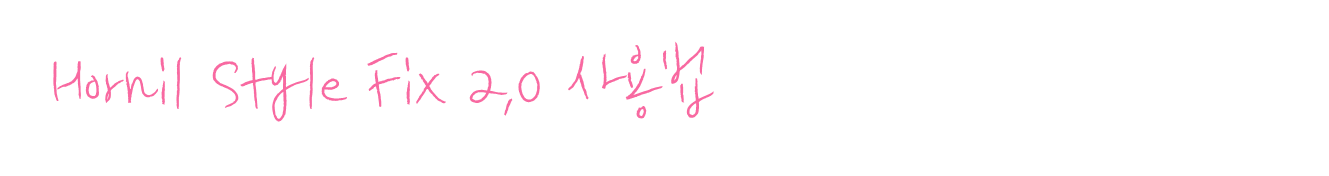 Hornil Style Fix 2,0 사용법